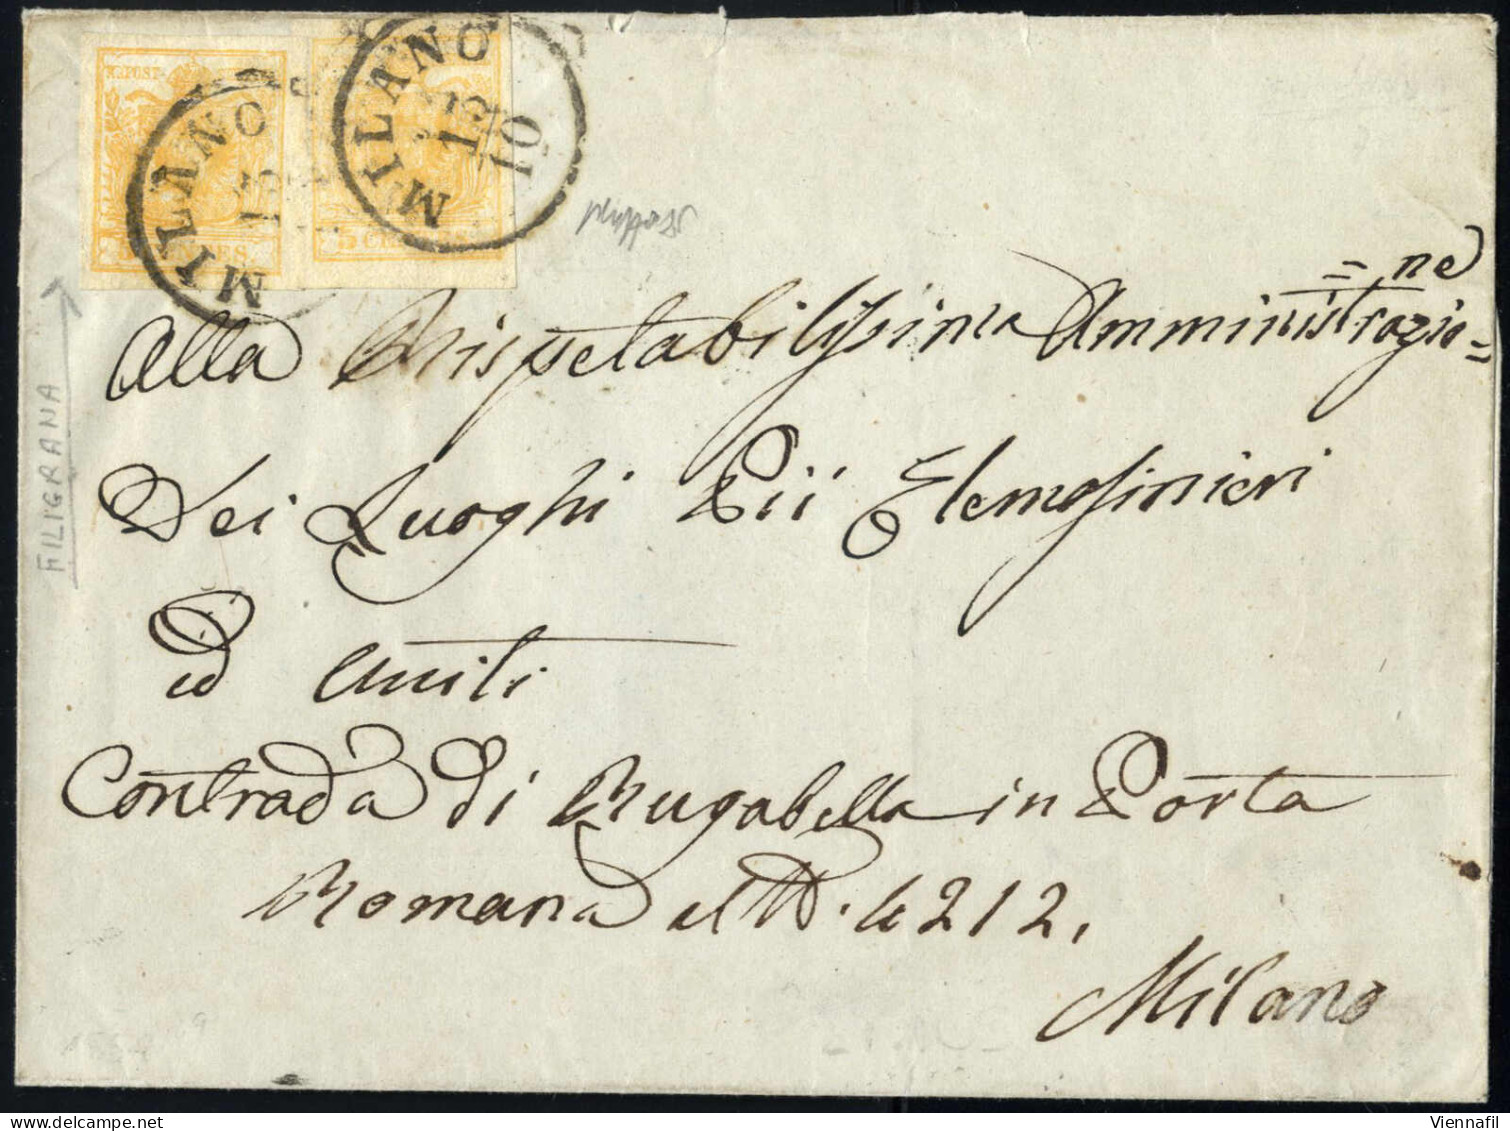 K.K.POST-
MILANO
13
MILANO
13
10
5 CENTES
FILIGRANA
ne
Alla Rispetabilissima Amministrazio=
Dei Luoghi Pii Elemosinieri
ed Uniti
Contrada di Rugabella in Porta
Romana al N. 4212.
Milano
Viennafil